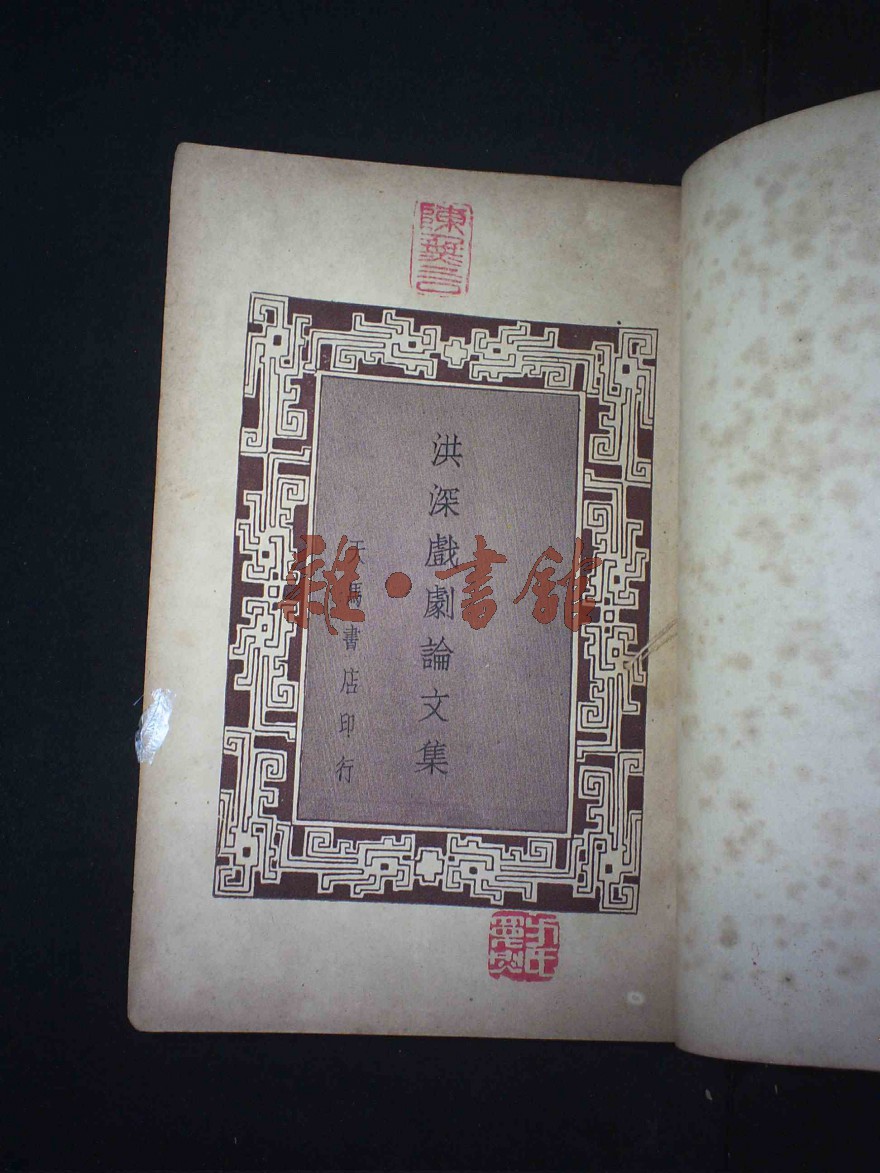 洪深戲劇論文集
天馬書店印行
雜·書館